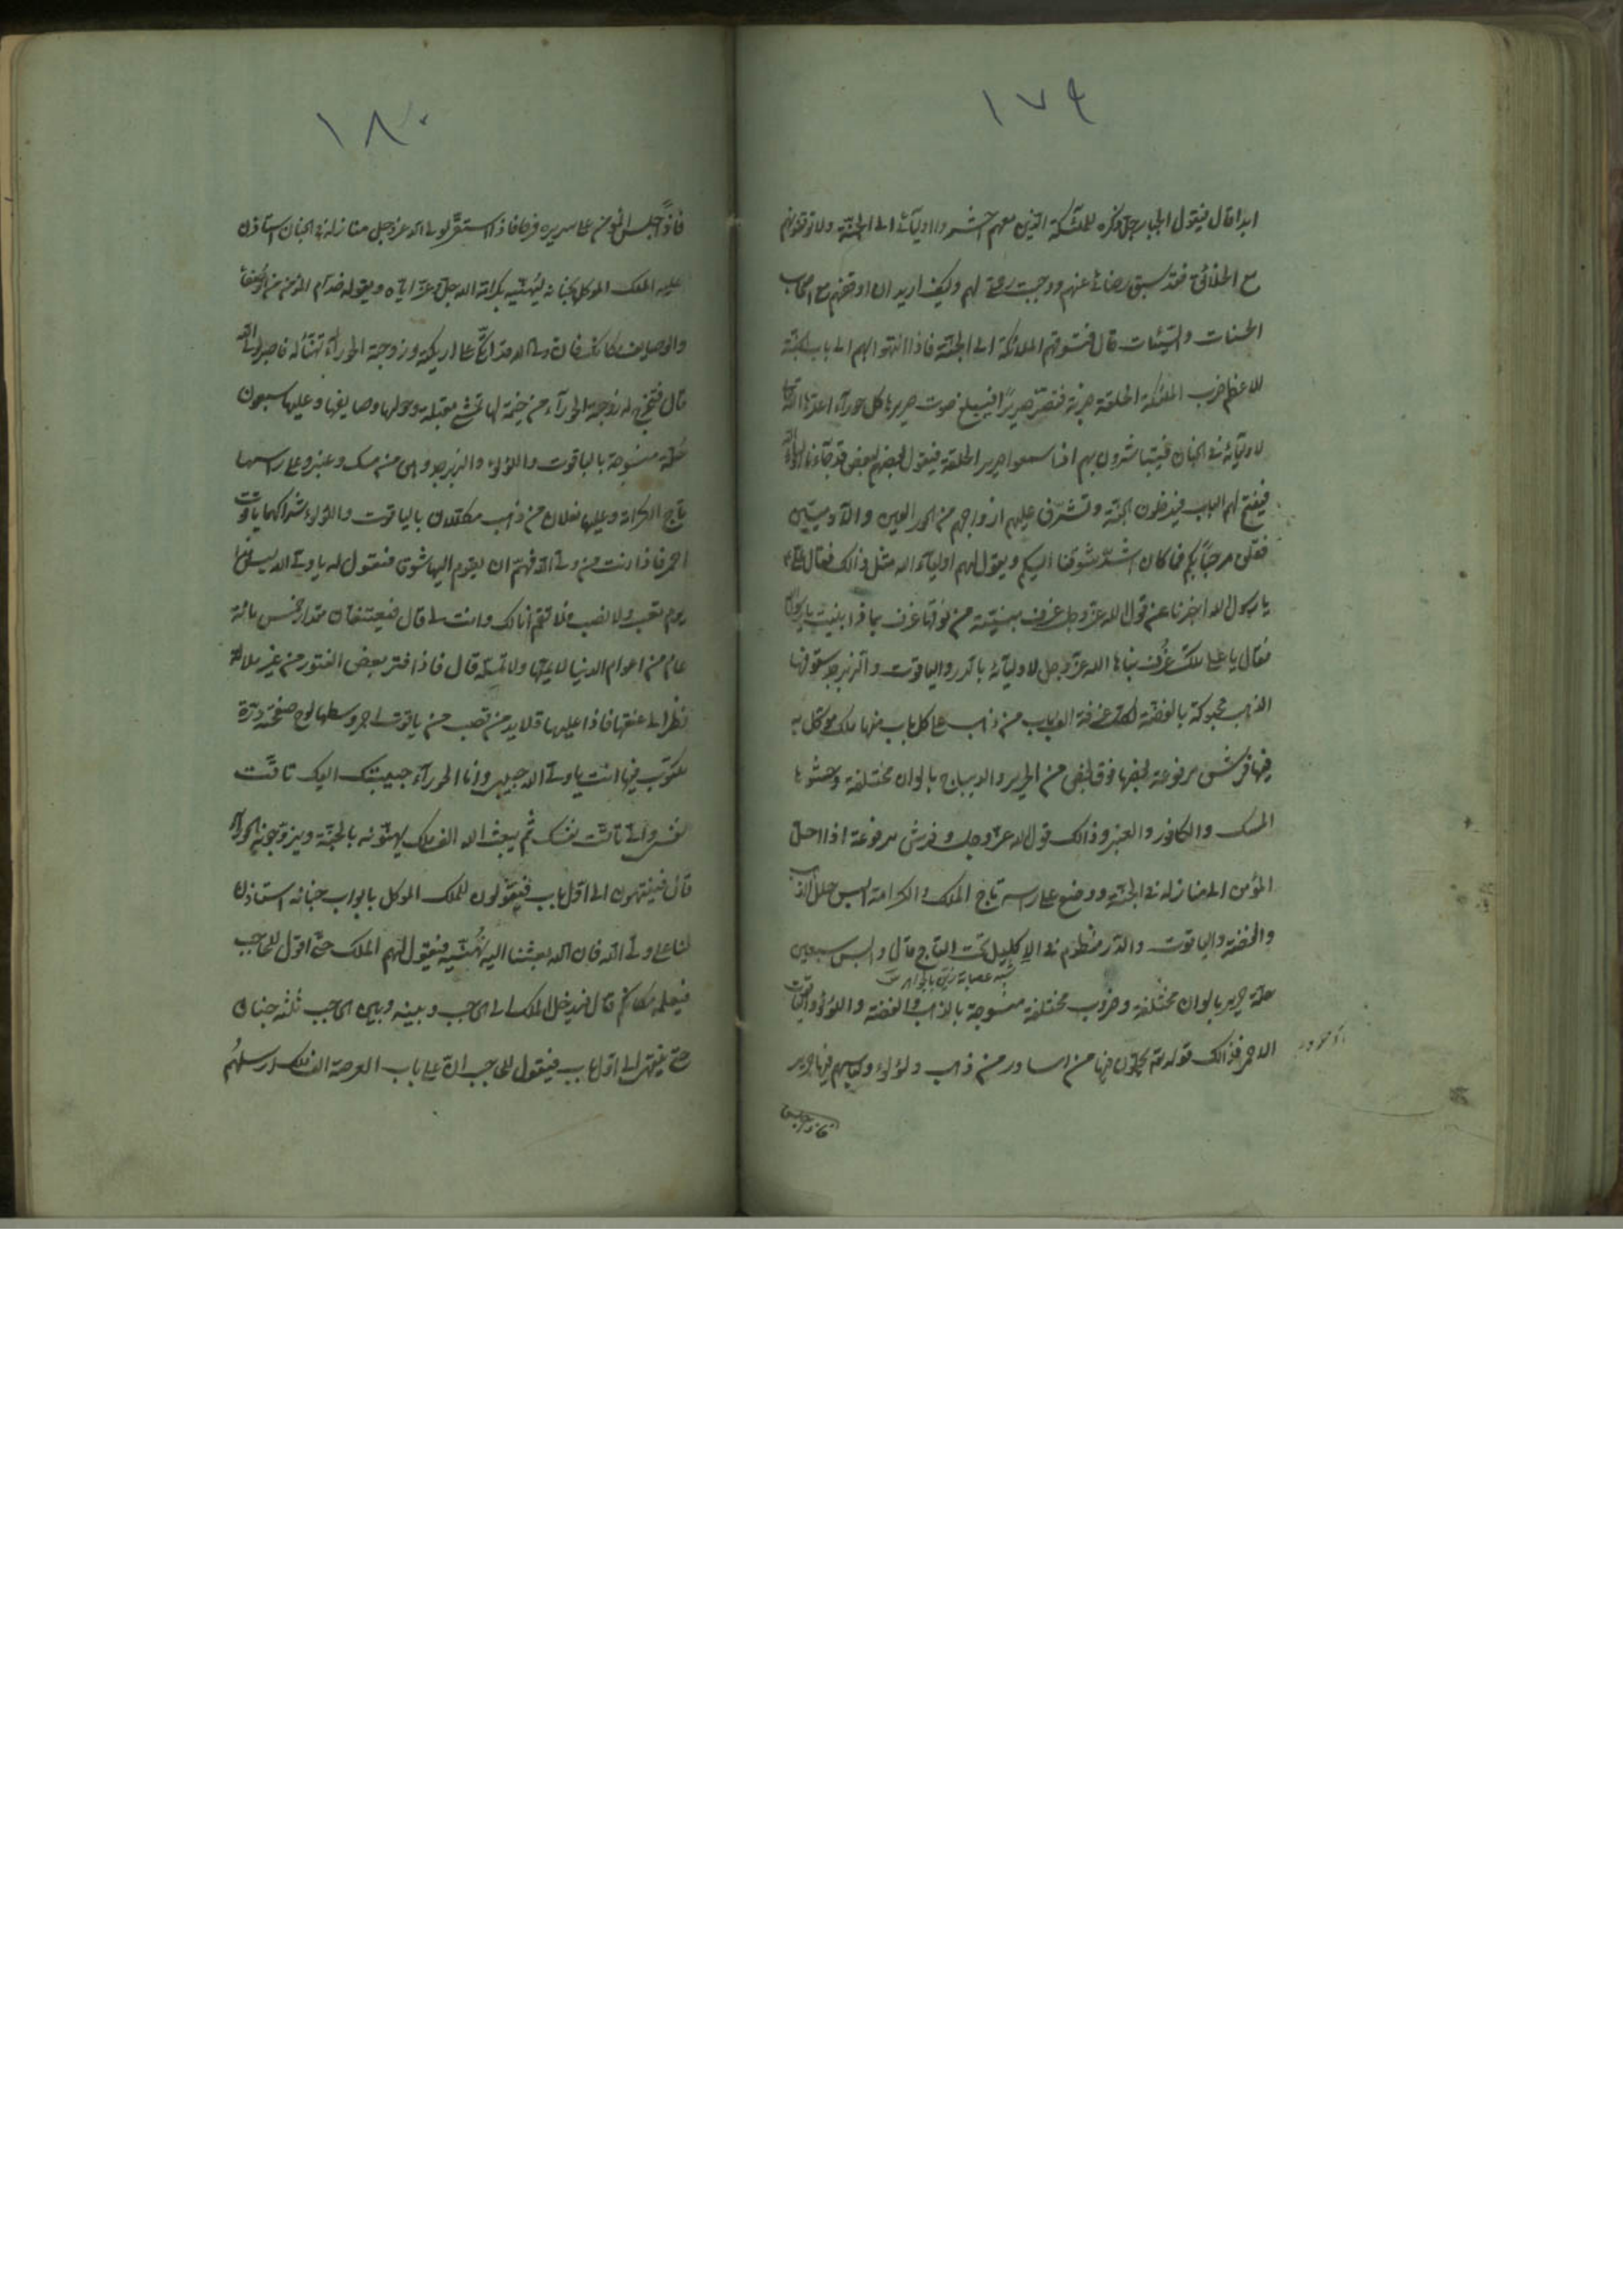 ١٧٩
ابدا قال فيقول الجبار جل ذكره للملئكة الذين معهم احشروا اوليآئى الى الجنّة ولا توقفوهم
مع الخلائق فقد سبق رضائى عنهم ووجبت رحمتى لهم وكيف اريد ان اوقفهم مع اصحاب
الحسنات والسّيئات قال فتسوقهم الملائكة الى الجنّة فاذا انتهوا بهم الى باب الجنّة
الاعظم ضرب الملئكة الحلقة ضربة فتصرّ صريرًا فيبلغ صوت صريرها كل حورآء اعدّها الله
لاوليآئه فى الجنان فيتباشرون بهم اذا سمعوا صرير الحلقة فيقول بعضهم لبعض قد جآءنا اوليآء الله
فيفتح لهم الباب فيدخلون الجنّة وتشرّف عليهم ازواجهم من الحور العين والآدميّين
فقلن مرحبًا بكم فما كان اشدّ شوقنا اليكم ويقول لهم اوليآء الله مثل ذالك فقال علىّ
يا رسول الله اخبرنا عن قول الله عزّ وجل غرف مبنيّة من فوقها غرف بماذا بنيت يا رسول الله
فقال يا على تلك غرف بناها الله عزّ وجل لاوليآئه بالدر والياقوت والزبرجد سقوفها
الذهب محبوكة بالفضّة لكل غرفة الف باب من ذهب على كل باب منها ملك موكّل به
فيها فرش مرفوعة بعضها فوق بعض من الحرير والديباج بالوان مختلفة وحشوها
المسك والكافور والعنبر وذالك قول الله عزّ وجل وفرش مرفوعة اذا ادخل
المؤمن الى منازله فى الجنّة ووضع على راسه تاج الملك والكرامة البس حلل الذهب
والفضّة والياقوت والدّر منظوم فى الاكليل تحت التاج قال والبس سبعين
حلّة حرير بالوان مختلفة وضروب مختلفة منسوجة بالذهب والفضة واللؤلؤ والياقوت
الاحمر فذالك قوله تعالى يحلّون فيها من اساور من ذهب ولؤلؤ ولباسهم فيها حرير
فاذا جلس
١٨٠
فاذا جلس المؤمن على سريره فرحًا فاذا استقرّ لولى الله عز وجل منازله فى الجنان استاذن
عليه الملك الموكل بجنانه ليهنّيه بكرامة الله جلّ وعزّ ايّاه ويقول له خدام المؤمن من الوصفآء
والوصايف مكانك فان ولى الله قد اتّكأ على اريكته وزوجته الحورآء تهيّأ له فاصبر لولى الله
قال فتخرج له زوجته الحورآء من خيمة لها تمشى مقبلة وحولها وصايفها وعليها سبعون
حلّة منسوجة بالياقوت واللؤلؤ والزبرجد وهى من مسك وعنبر وعلى راسها
تاج الكرامة وعليها نعلان من ذهب مكلّلتان بالياقوت واللؤلؤ شراكهما ياقوت
احمر فاذا دنت من ولى الله فهمّ ان يقوم اليها شوقًا فتقول له يا ولى الله ليس هذا
يوم تعب ولا نصب فلا تقم انا لك وانت لى قال فيعتنقان مقدار خمس مائة
عام من اعوام الدنيا لا يملّها ولا تملّه قال فاذا فتر بعض الفتور من غير ملالة
نظر الى عنقها فاذا عليها قلايد من قصب من ياقوت احمر وسطها لوح صفحته درّة
مكتوب فيها انت يا ولى الله حبيبى وانا الحورآء حبيبتك اليك تاقت
نفسى والى تاقت نفسك ثم يبعث الله الف ملك يهنّونه بالجنّة ويزوّجونه بالحورآء
قال فينتهون الى اوّل باب فيقولون للملك الموكل بابواب جنانه استاذن
لنا على ولى الله فان الله بعثنا اليه نُهنّيه فيقول لهم الملك حتّى اقول للحاجب
فيعلمه بمكانكم قال فيدخل الملك الى الحاجب وبينه وبين الحاجب ثلثه جنان
حتى ينتهى الى اوّل باب فيقول للحاجب انّ على باب العرصة الف ملك ارسلهُم